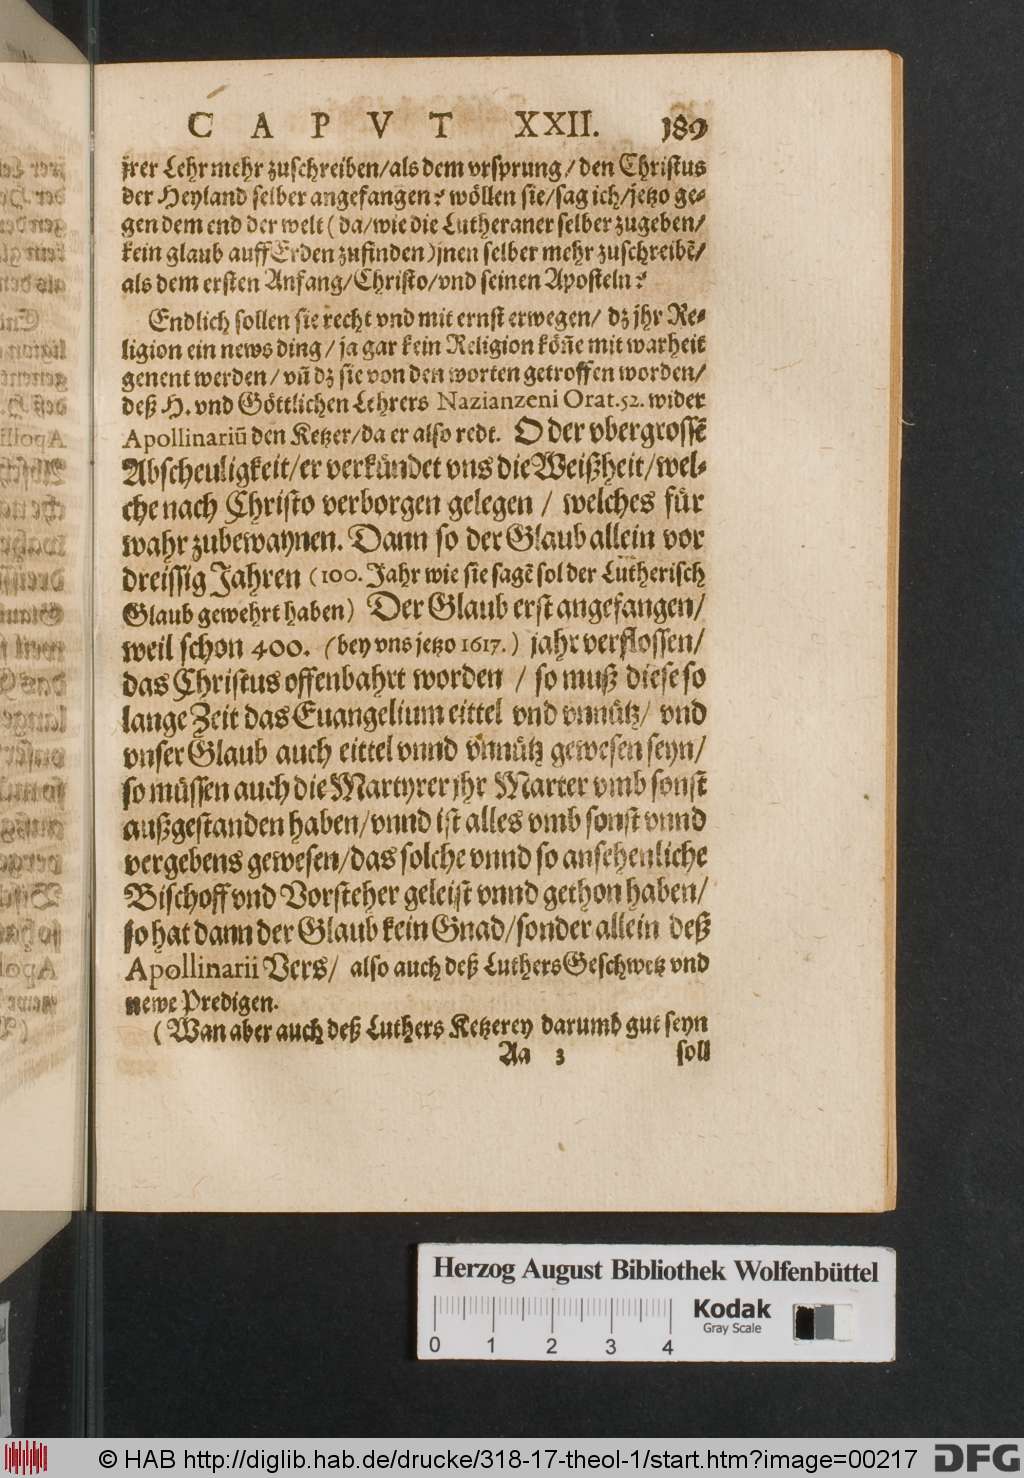 CAPVT XXII. 189
jrer Lehr mehr zuschreiben/als dem vrsprung/den Christus
der Heyland selber angefangen? wöllen sie/sag ich/jetzo ge-
gen dem end der welt (da/wie die Lutheraner selber zugeben/
kein glaub auff Erden zufinden) jnen selber mehr zuschreibẽ/
als dem ersten Anfang/Christo/vnd seinen Aposteln?
Endlich sollen sie recht vnd mit ernst erwegen/ dz jhr Re-
ligion ein news ding/ ja gar kein Religion köñe mit warheit
genent werden/ vñ dz sie von den worten getroffen worden/
deß H. vnd Göttlichen Lehrers Nazianzeni Orat. 52. wider
Apollinariũ den Ketzer/da er also redt. O der vbergrossẽ
Abscheuligkeit/er verkündet vns die Weißheit/wel-
che nach Christo verborgen gelegen / welches für
wahr zubewaynen. Dann so der Glaub allein vor
dreissig Jahren (100. Jahr wie sie sagẽ sol der Lutherisch
Glaub gewehrt haben) Der Glaub erst angefangen/
weil schon 400. (bey vns jetzo 1617.) jahr verflossen/
das Christus offenbahrt worden / so muß diese so
lange Zeit das Euangelium eittel vnd vnnütz/ vnd
vnser Glaub auch eittel vnnd vnnütz gewesen seyn/
so müssen auch die Martyrer jhr Marter vmb sonst
außgestanden haben/vnnd ist alles vmb sonst vnnd
vergebens gewesen/das solche vnnd so ansehenliche
Bischoff vnd Vorsteher geleist vnnd gethon haben/
so hat dann der Glaub kein Gnad/sonder allein deß
Apollinarii Vers/ also auch deß Luthers Geschwetz vnd
newe Predigen.
(Wan aber auch deß Luthers Ketzerey darumb gut seyn
Aa 3 soll
Herzog August Bibliothek Wolfenbüttel
Kodak
Gray Scale
0 1 2 3 4
© HAB http://diglib.hab.de/drucke/318-17-theol-1/start.htm?image=00217 DFG